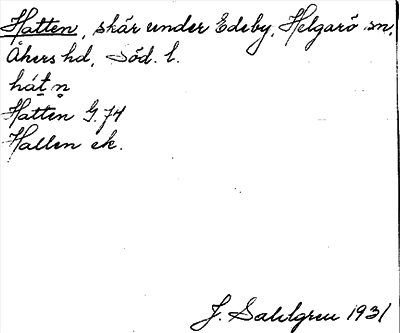 Hatten, skär under Edeby, Helgarö sn,
Åkers hd, Söd. l.
há́t n̥
Hatten G. 74
Hallen ek.
J. Sahlgren 1931